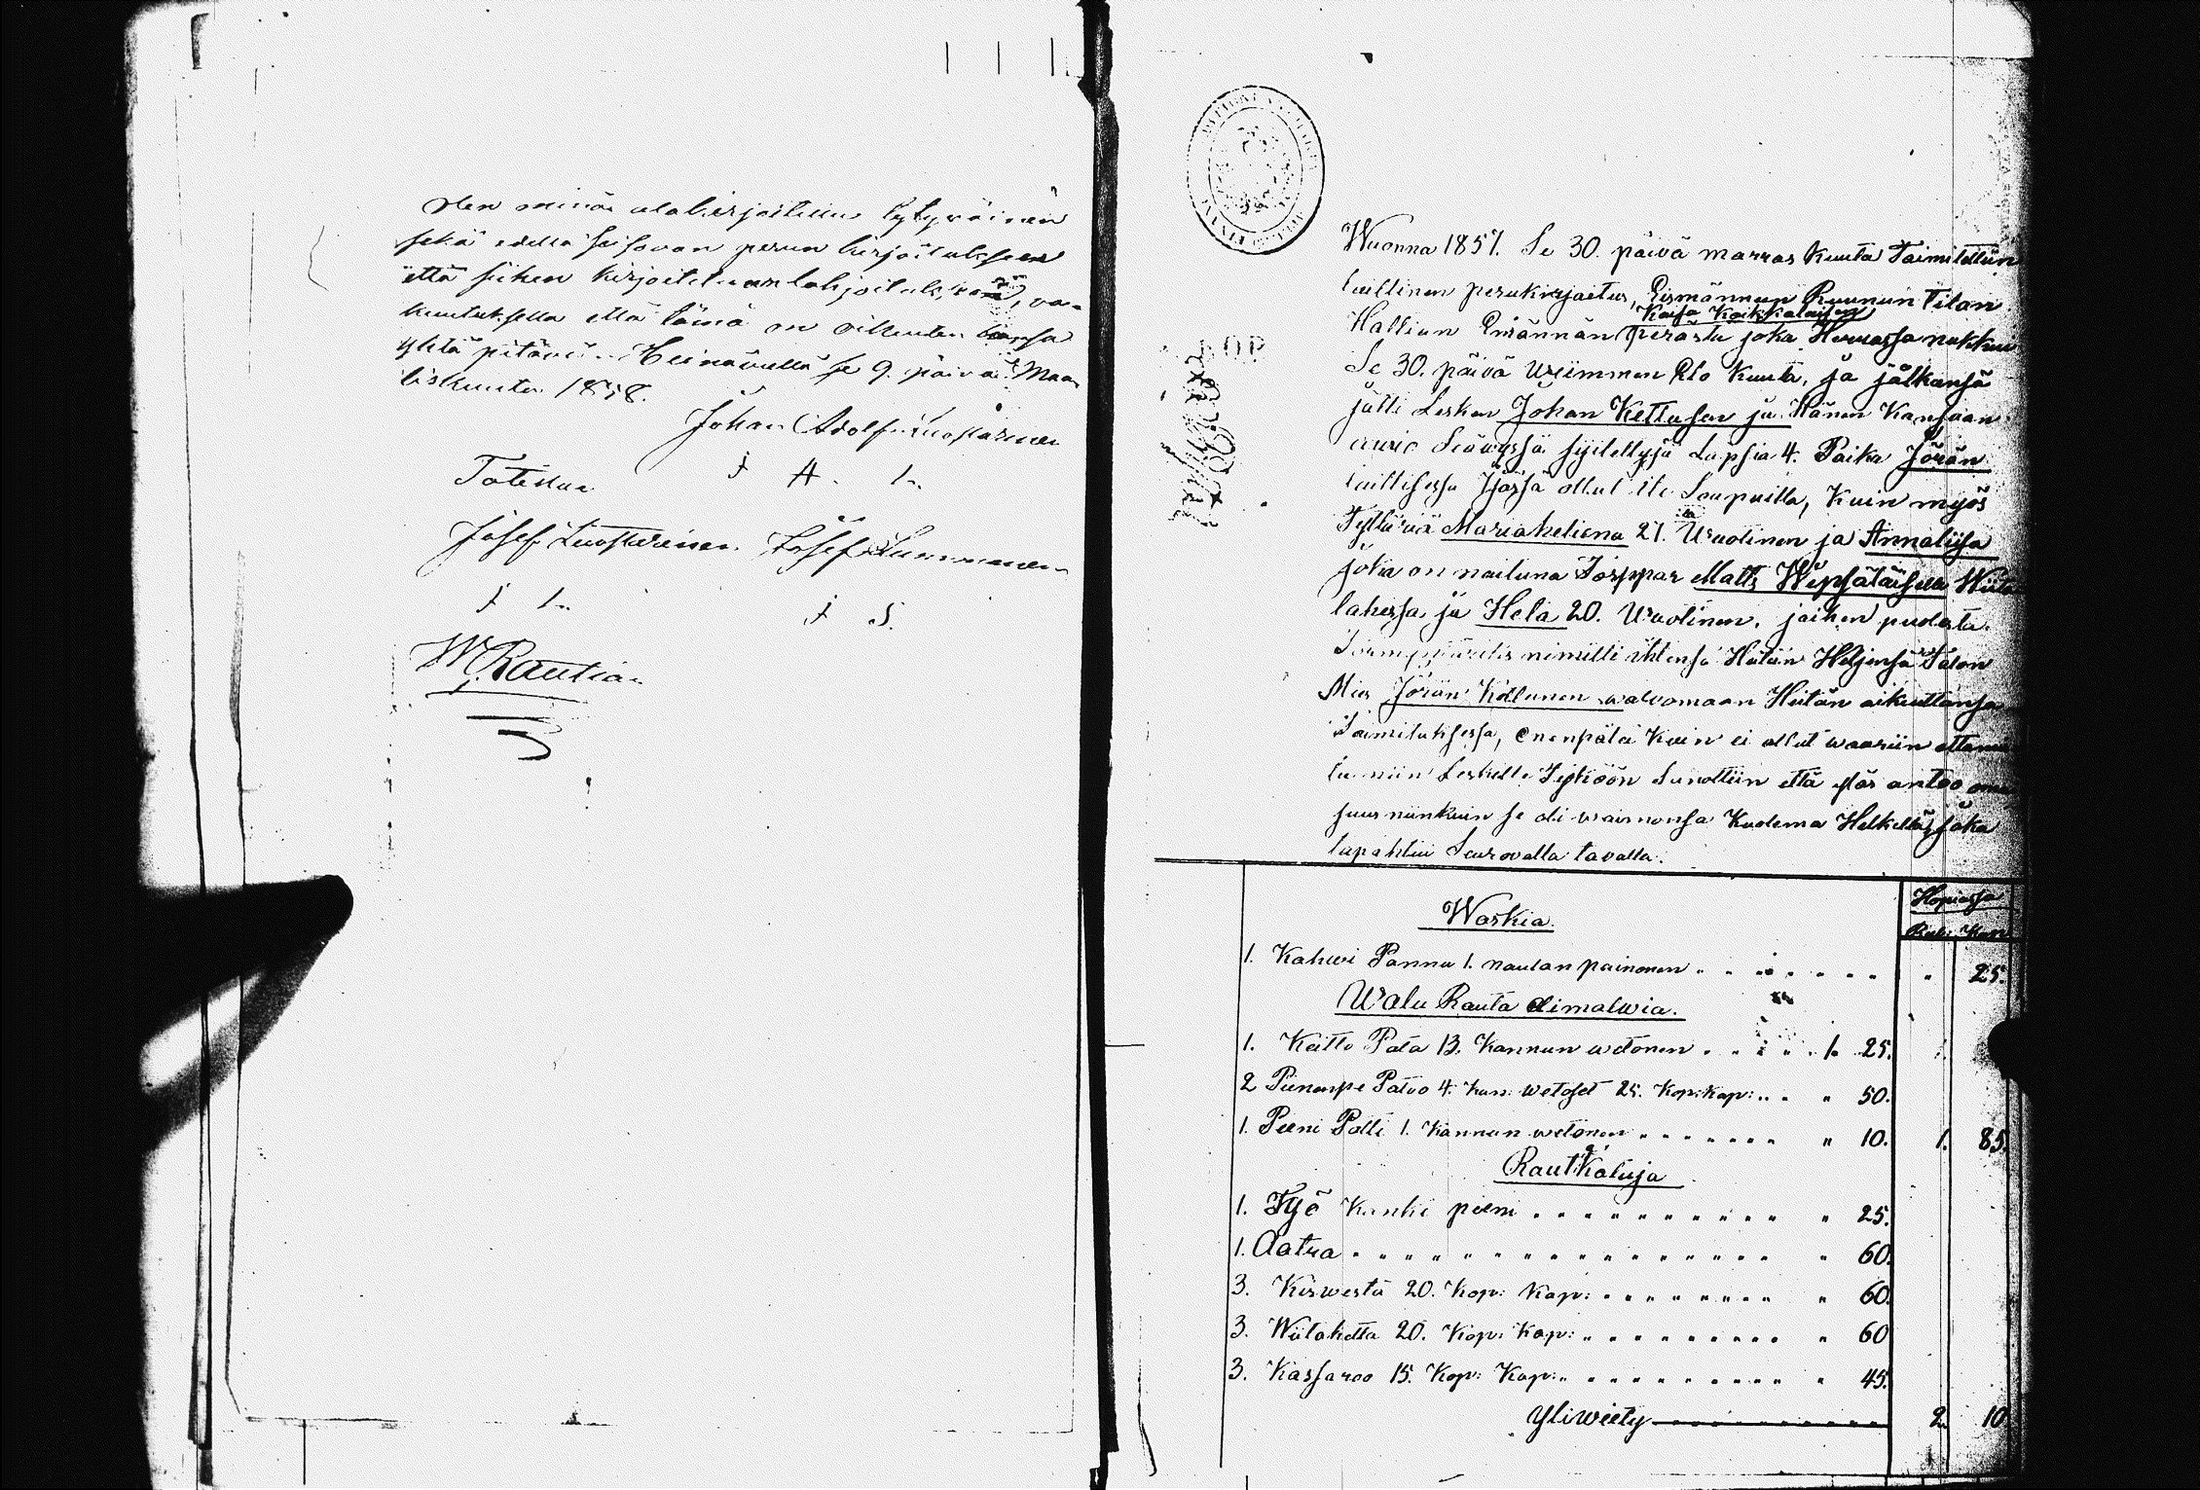 olen minä alakirjoittanu tytyväinen
sekä edellä seisovan perun kirjoitukseen
että siihen kirjoitettuun lahjoitukseen, va-
kuutuksella että tämä on oikeuden kansa
yhtä pitävä. Heinävedellä se 9. päivä Maa-
liskuuta 1858.
Johan Adolf Luostarinen
J A. L.
Totistaa
Josef Luostarinen. Josef Summanen
J L. J S.
W. Rautia
Wuonna 1857. Se 30. päivä marras Kuuta Taimitettiin
laillinen perukirjaitus, Rismännun Ruunun Tilan
Kaisa Koikkalaisen
Haltian Emännän perästä joka Herrassa nukkui
Se 30. päivä wiimmen Elo Kuuta, ja jälkensä
jätti Lesken Johan Kettusen ja Hänen Kansaan
awio Säädyssä syitettyjä Lapsia 4. Paika Jörän
laillisessa Jjässä ollut ite Laupailla, Kuin myös
Tyttäriä Mariaheliena 21. Wuotinen ja Annaliisa
joka on naituna Torppar Matts Wepsäläisellä Wiita
lahessa ja Hela 20. Wuotinen. joihen puolesta
nimitti ihtensä Hätiin Heljensä Talon
Mies Jörän Kettunen walvomaan Heitän oikeuttansa
Taimituksessa, enenpätä Kuin ei ollut waariin ottami
ta niin Leskelle Tyköön Sanottiin että ylös antoo oma
suus niinkuin se oli waimonsa Kuolema Hetkellä, joka
tapahtui Seurovalla tavalla.
Hopiassa
Rub: Kop
Waskia.
1. Kahwi Pannu 1. naulan painonen " 25.
Walu Rauta Aimaluia.
1. Keitto Pata 13. Kannun wetonen 1. 25.
2 Pienenpe Patoo 4. kan: wetoset 25. Kop: Kap: " 50.
1. Pieni Patti 1. Kannun wetonen " 10. 1. 85.
Rautkaluja
1. Työ Kanki pieni " 25.
1. Aatra " 60.
3. Kirwestä 20. Kop: Kap: " 60.
3. Wiitahetta 20. Kop: Kap: " 60
3. Kassaroo 15. Kop: Kap: " 45.
Yliwiety 2 10